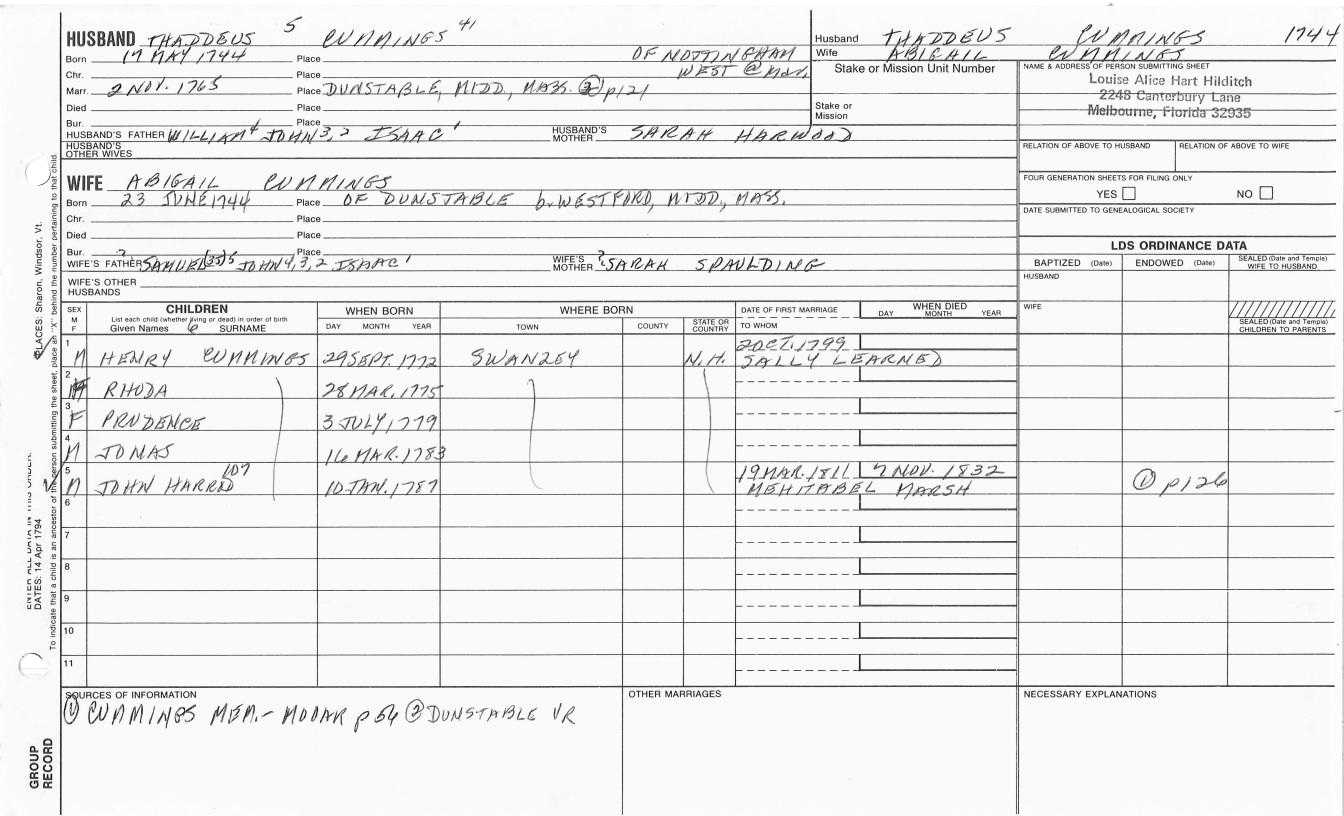 HUSBAND THADDEUS 5 CUMMINGS 41
Born 17 MAY 1744 Place OF NOTTINGHAM
Chr. Place WEST @ Mar.
Marr. 2 NOV. 1765 Place DUNSTABLE, MIDD., MASS. ② p121
Died Place
Bur. Place
HUSBAND'S FATHER WILLIAM 4 JOHN 3, 2 ISAAC 1 HUSBAND'S MOTHER SARAH HARWOOD
HUSBAND'S OTHER WIVES
WIFE ABIGAIL CUMMINGS
Born 23 JUNE 1744 Place OF DUNSTABLE b. WESTFORD, MIDD., MASS.
Chr. Place
Died Place
Bur. Place
WIFE'S FATHER ? SAMUEL (35) 5 JOHN 4, 3, 2 ISAAC 1 WIFE'S MOTHER ? SARAH SPAULDING
WIFE'S OTHER HUSBANDS
Husband THADDEUS CUMMINGS 1744
Wife ABIGAIL CUMMINGS
Stake or Mission Unit Number
Stake or Mission
NAME & ADDRESS OF PERSON SUBMITTING SHEET
Louise Alice Hart Hilditch
2248 Canterbury Lane
Melbourne, Florida 32935
RELATION OF ABOVE TO HUSBAND RELATION OF ABOVE TO WIFE
FOUR GENERATION SHEETS FOR FILING ONLY
YES NO
DATE SUBMITTED TO GENEALOGICAL SOCIETY
LDS ORDINANCE DATA
BAPTIZED (Date) ENDOWED (Date) SEALED (Date and Temple) WIFE TO HUSBAND
HUSBAND
WIFE
SEALED (Date and Temple) CHILDREN TO PARENTS
SEX M F
CHILDREN
List each child (whether living or dead) in order of birth
Given Names 6 SURNAME
WHEN BORN
DAY MONTH YEAR
WHERE BORN
TOWN COUNTY STATE OR COUNTRY
DATE OF FIRST MARRIAGE
TO WHOM
WHEN DIED
DAY MONTH YEAR
1 M HENRY CUMMINGS 29 SEPT. 1772 SWANZEY N.H. 2 OCT. 1799
SALLY LEARNED
2 RHODA 28 MAR. 1775
3 F PRUDENCE 3 JULY, 1779
4 M JONAS 16 MAR. 1783
5 M JOHN HARROD 107 10 JAN. 1787 19 MAR. 1811 7 NOV. 1832
MEHITABEL MARSH ① p126
6
7
8
9
10
11
SOURCES OF INFORMATION
① CUMMINGS MEM. - MOOAR p 56 ② DUNSTABLE VR
OTHER MARRIAGES
NECESSARY EXPLANATIONS
PLACES: Sharon, Windsor, Vt.
DATES: 14 Apr 1794
To indicate that a child is an ancestor of the person submitting the sheet, place an "X" behind the number pertaining to that child.
GROUP RECORD